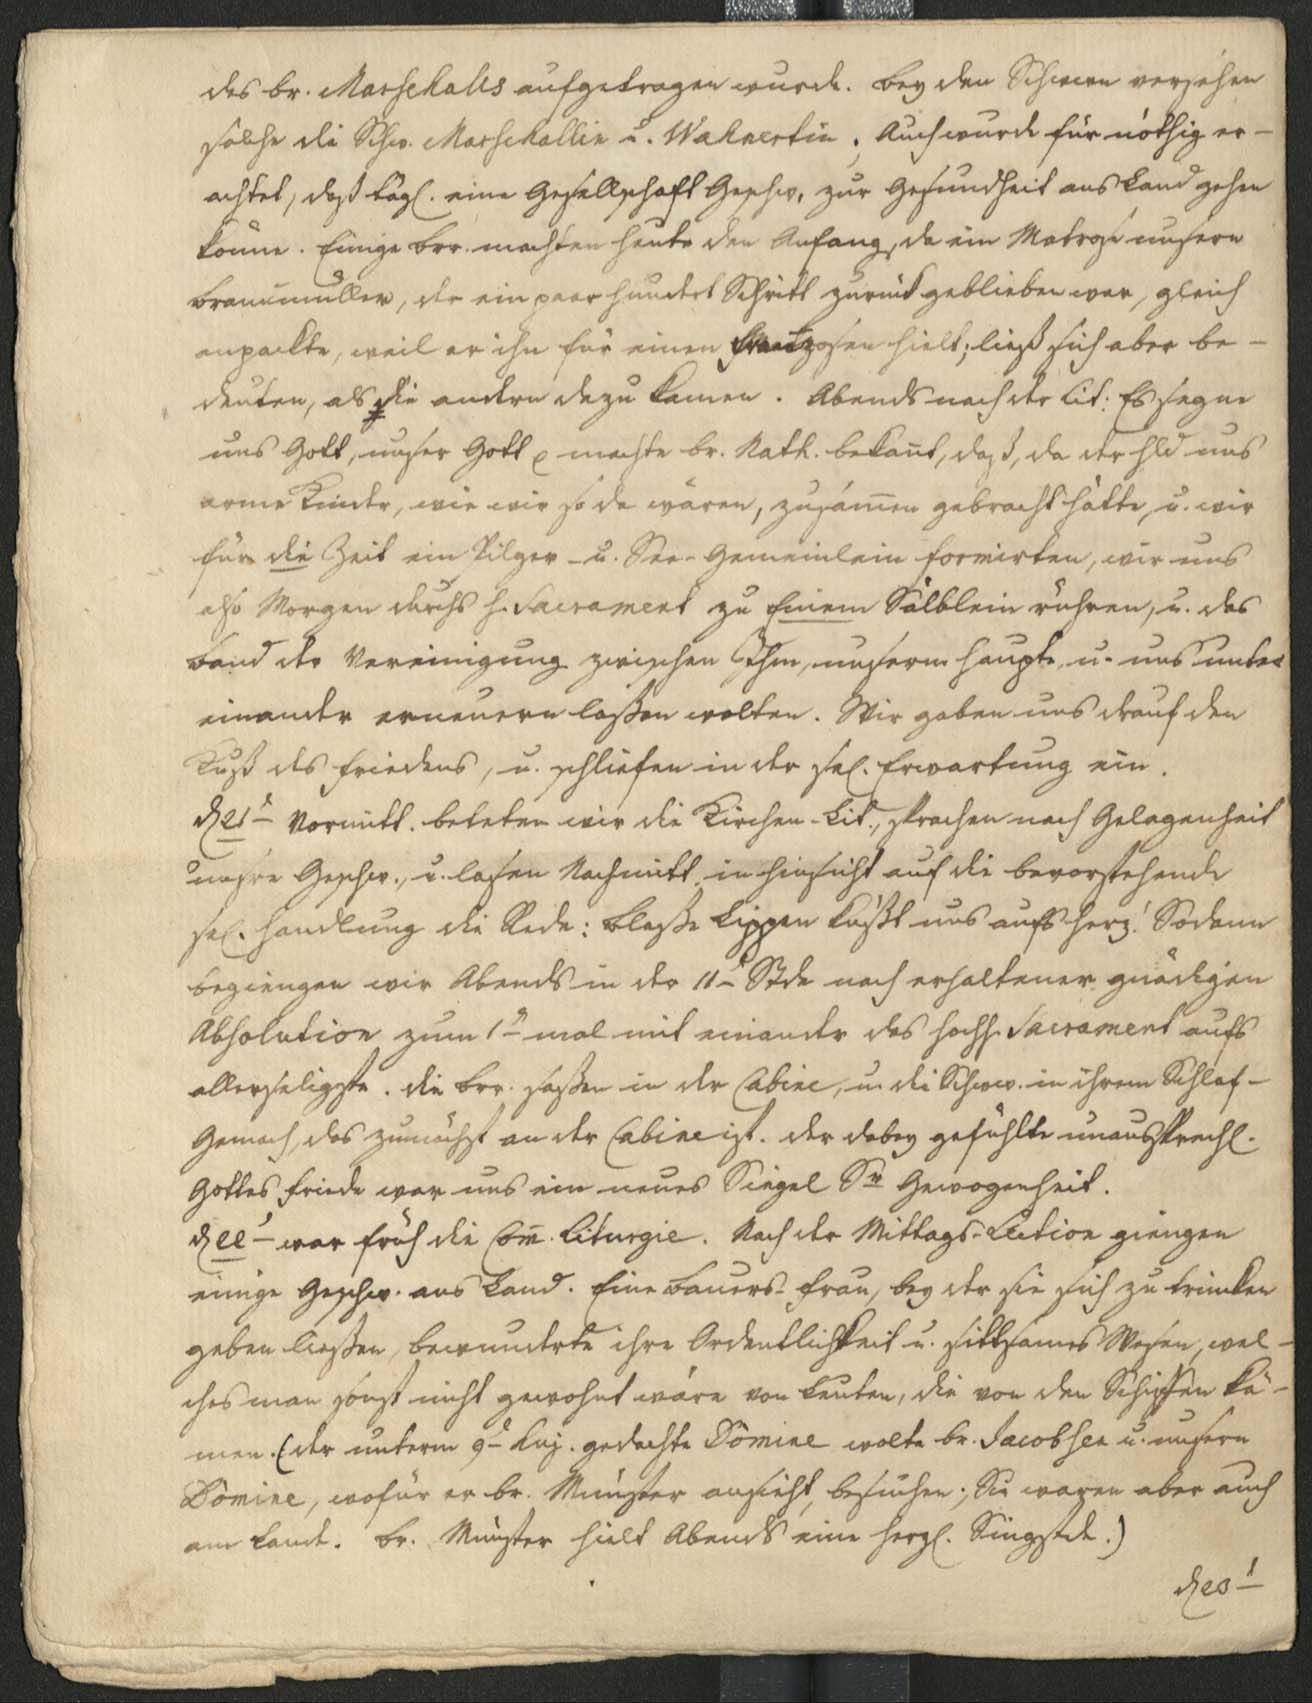 des br. Marschalls aufgetragen wurde. Bey den Schwrn versehen
solche die Schw. Marschallin u. Wahnertin. Auch wurde für nöthig er-
achtet, daß tägl. eine Gesellschaft Geschw. zur Gesundheit ans Land gehen
könne. Einige brr. machten heute den Anfang, da ein Matrose unsern
Braunmüller, der ein paar hundert Schritt zurück geblieben war, gleich
anpackte, weil er ihn für einen Franzosen hielt; ließ sich aber be-
deuten, als die andern dazu kamen. Abends nach der Lit: Es segne
uns Gott, unser Gott machte br. Nath. bekant, daß, da der Hld uns
arme Kinder, wie wir so da wären, zusamen gebracht hätte, u. wir
für die Zeit ein Pilger- u. See-Gemeinlein formirten, wir uns
also Morgen durchs h. Sacrament zu Einem Sälblein rühren, u. das
Band der Vereinigung zwischen Ihm, unserm Haupte, u. uns unter
einander erneuern laßen wolten. Wir gaben uns drauf den
Kuß des Friedens, u. schliefen in der sel. Erwartung ein.
d 21t Vormitt. beteten wir die Kirchen-Lit., sprachen nach Gelegenheit
unsre Geschw., u. lasen Nachmitt. in Hinsicht auf die bevorstehende
sel. Handlung die Rede: Blaße Lippen küßt uns aufs Herz! Sodann
begiengen wir Abends in der 11t Stde nach erhaltener gnädigen
Absolution zum 1n mal mit einander das hochh. Sacrament aufs
allerseligste. Die brr. saßen in der Cabine, u. die Schww. in ihrem Schlaf-
Gemach, das zunächst an der Cabine ist. Der dabey gefühlte unaussprechl.
Gottes Friede war uns ein neues Siegel Sr Gewogenheit.
d 22t war früh die Com. Liturgie. Nach der Mittags-Lection giengen
einige Geschw. ans Land. Eine Bauers-Frau, bey der sie sich zu trinken
geben ließen, bewunderte ihre Ordentlichkeit u. sittsames Wesen, wel-
ches man sonst nicht gewohnt wäre von Leuten, die von den Schiffen kä-
men. (Der unterm 9t huj. gedachte Domine wolte br. Jacobsen u. unsern
Domine, wofür er br. Münster ansieht, besuchen; Sie waren aber auch
am Lande. br. Münster hielt Abends eine herzl. Singstde.)
d 23t